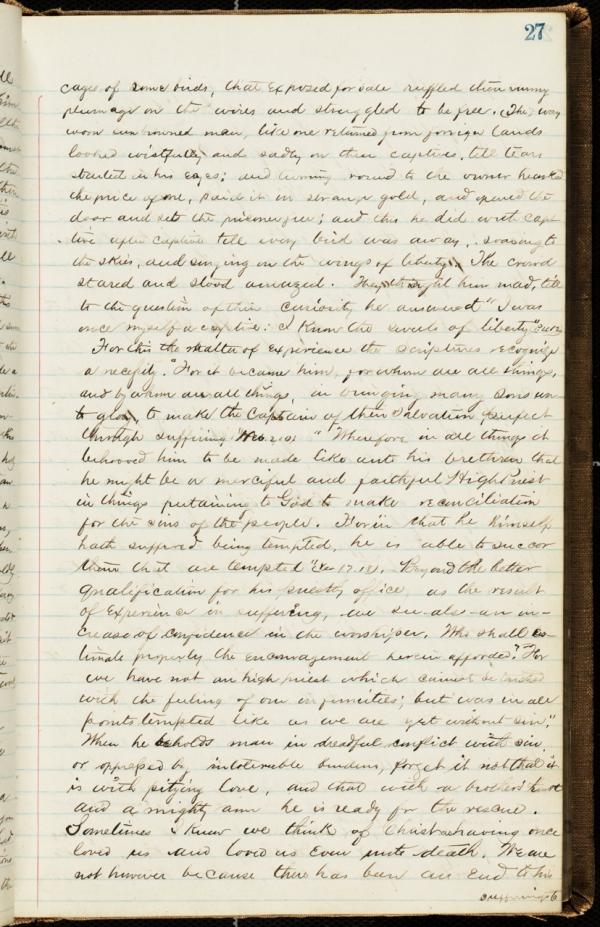 27
cages of some birds, that exposed for sale ruffled their sunny
plumage on the wires and struggled to be free. (The) way
worn sun browned man, like one returned from foreign lands
looked wistfully and sadly on these captives, till tears
started in his eyes; and turning round to the owner he asked
the price of one, paid it in strange gold, and opened the
door and sets the prisoner free; and this he did with cap-
tive after captive till every bird was away, soaring to
the skies, and singing on the wings of liberty. The crowd
stared and stood amazed. They thought him mad, till
to the question of their curiosity he answered "I was
once myself a captive: I know the sweets of liberty."
For this the matter of experience the scriptures recognize
a necessity. "For it became him, for whom are all things,
and by whom are all things, in bringing many sons un-
to glory, to make the Captain of their salvation perfect
through suffering Heb. 2:10. "Wherefore in all things it
behooved him to be made like unto his brethren that
he might be a merciful and faithful High Priest
in things pertaining to God to make reconciliation
for the sins of the people. For in that he himself
hath suffered being tempted, he is able to succor
them that are tempted" 17.18). Beyond the better
qualification for his priestly office, as the result
of experience in suffering, we see-also-an in-
crease of confidence in the worshiper. Who shall es-
timate properly the encouragement herein afforded? "For
we have not an high priest which cannot be touched
with the feeling of our infirmities; but was in all
points tempted like as we are yet without sin."
When he beholds man in dreadful conflict with sin,
or oppressed by intolerable burdens, forget it not that it
is with pitying love, and that with a brother's heart
and a mighty arm he is ready for the rescue.
Sometimes I know we think of Christ as having once
loved us and loved us even unto death. We are
not however because there has been an end to his
sufferings to